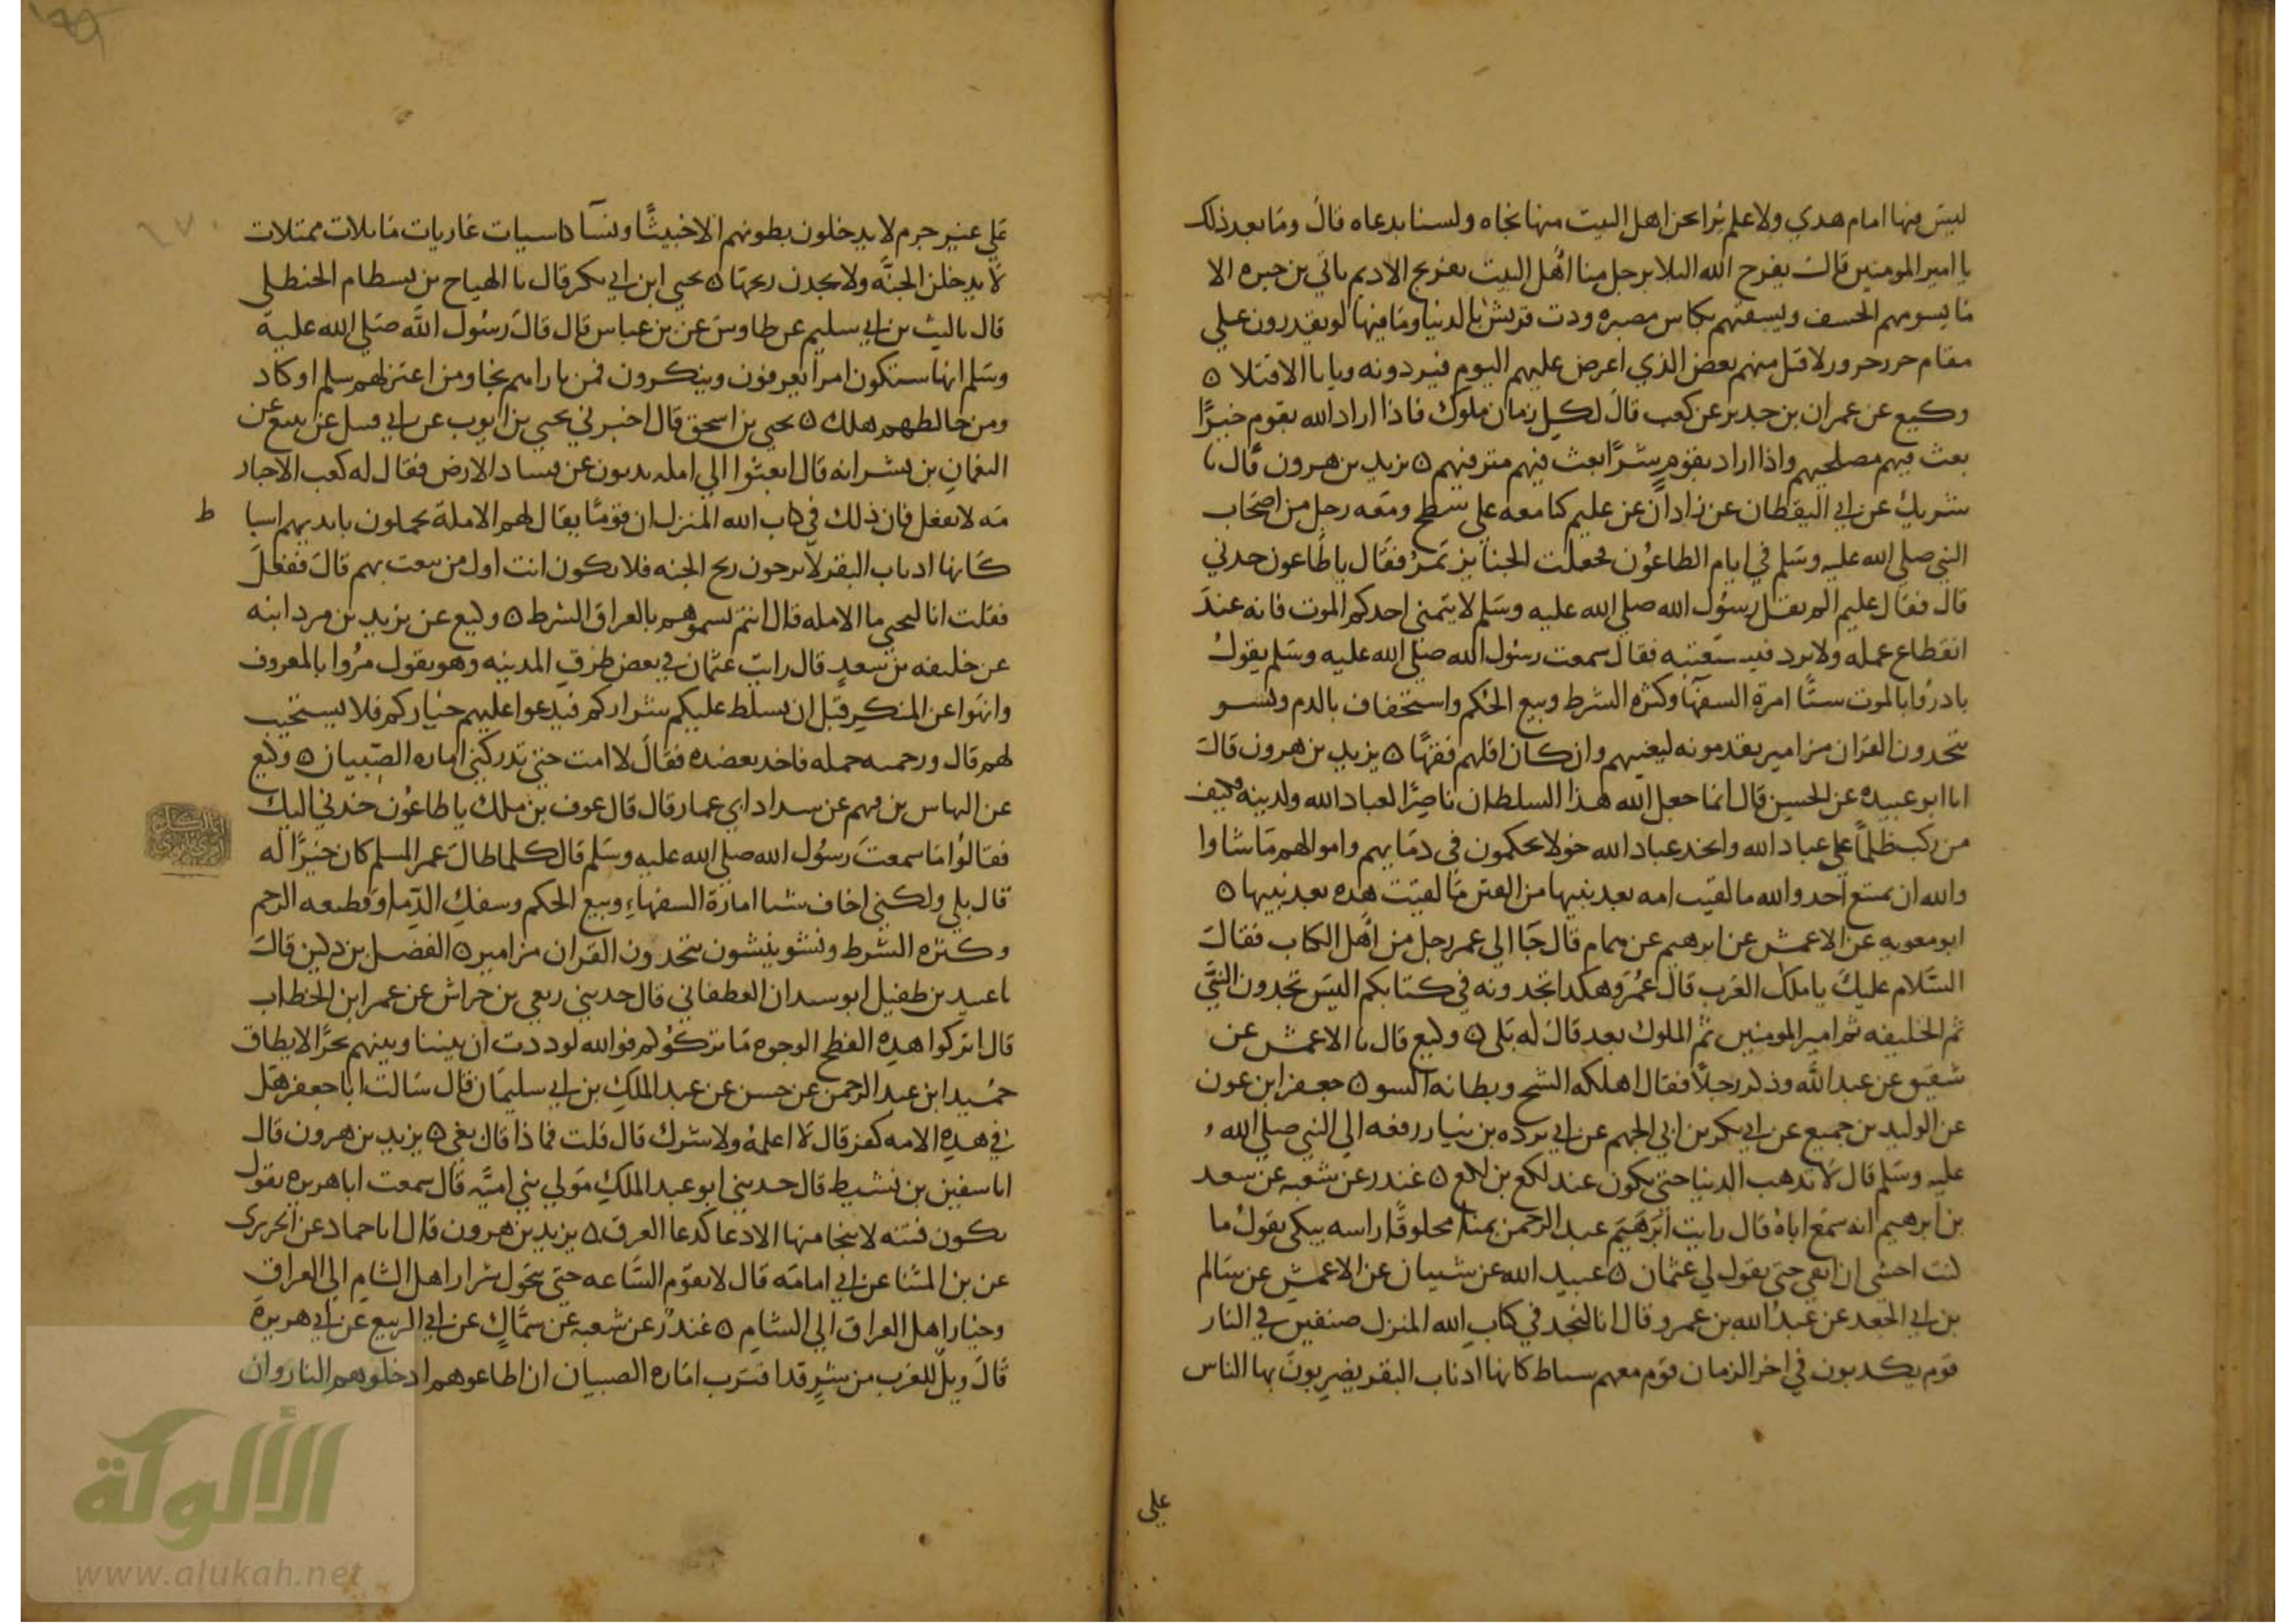 ليس فيها امام هدي ولا علم يرا نحن اهل البيت منها نجاه ولسنا بدعاه قال وما بعد ذلك
يا امير المومنين قال يفرج الله البلا برجل منا اهل البيت تفريج الاديم ياتي بن خيره الا
ما يسومهم الخسف ويسقيهم بكاس مصبره ودت قريش بالدنيا وما فيها لو يقدرون علي
مقام جزر جزور لاقبل منهم بعض الذي اعرض عليهم اليوم فيردونه ويابا الا قتلا ه
وكيع عن عمران بن حدير عن كعب قال لكل زمان ملوك فاذا اراد الله بقوم خيرًا
بعث فيهم مصلحيهم واذا اراد بقوم شرًا بعث فيهم مترفيهم ه يزيد بن هرون قال نا
شريك عن ابي اليقظان عن زاذان عن عليم كنا معه علي سطح ومعه رجل من اصحاب
النبي صلي الله عليه وسلم في ايام الطاعون فجعلت الجنايز تمر فقال يا طاعون خدني
قال فقال عليم الم يقل رسول الله صلي الله عليه وسلم لا يتمني احدكم الموت فانه عند
انقطاع عمله ولا يرد فيستعتبه فقال سمعت رسول الله صلي الله عليه وسلم يقول
بادروا بالموت ستًا امرة السفها وكثره الشرط وبيع الحكم واستخفاف بالدم ونشو
يتخدون القران مزامير يقدمونه ليغنيهم وان كان اقلهم فقهًا ه يزيد بن هرون قال
انا ابو عبيده عن الحسن قال انما جعل الله هذا السلطان ناصرًا لعباد الله ولدينه فكيف
من ركب ظلمًا علي عباد الله واتخد عباد الله خولا يحكمون في دمايهم واموالهم ما شاوا
والله ان يمتنع احد والله ما لقيت امه بعد نبيها من الفتن ما لقيت هده بعد نبيها ه
ابو معويه عن الاعمش عن ابرهيم عن همام قال جا الي عمر رجل من اهل الكتاب فقال
السلام عليك يا ملك العرب قال عمر وهكدا تجدونه في كتابكم اليس تجدون النبي
ثم الخليفه ثم امير المومنين ثم الملوك بعد قال له بلي ه وكيع قال نا الاعمش عن
شقيق عن عبد الله وذكر رجلاً فقال اهلكه الشح وبطانه السو ه جعفر ابن عون
عن الوليد بن جميع عن ابي بكر بن ابي الجهم عن ابي برده بن نيار رفعه الي النبي صلي الله
عليه وسلم قال لا تدهب الدنيا حتي يكون عند لكع بن لكع ه غندر عن شعبه عن سعد
بن ابرهيم انه سمع اباه قال رايت ابرهيم عبد الرحمن بمنا محلوقًا راسه يبكي يقول ما
كنت اخشي ان ابقي حتي يقول لي عثمان ه عبيد الله عن شيبان عن الاعمش عن سالم
بن ابي الجعد عن عبد الله بن عمرو قال انا لنجد في كتاب الله المنزل صنفين في النار
قوم يكدبون في اخر الزمان قوم معهم سياط كانها ادناب البقر يضربون بها الناس
علي
علي غير جرم لا يدخلون بطونهم الا خبيثًا ونسآ كاسيات عاريات مايلات مميلات
لا يدخلن الجنة ولا يجدن ريحها ه يحيي ابن ابي بكر قال نا الهياج بن بسطام الحنظلي
قال نا ليث بن ابي سليم عن طاوس عن بن عباس قال قال رسول الله صلي الله عليه
وسلم انها ستكون امرا يعرفون وينكرون فمن ناراهم نجا ومن اعتزلهم سلم او كاد
ومن خالطهم هلك ه يحيي بن اسحق قال اخبرني يحيي بن ايوب عن ابي عن عن
النعمان بن بشر انه قال ابعثوا الي امله يدبون عن فساد الارض فقال له كعب الاحبار
مه لا تفعل فان ذلك في كتاب الله المنزل ان قومًا يقال لهم الاملة يحملون بايديهم اسيا ط
كانها ادناب البقر لا يرحون ريح الجنه فلا تكون انت اول من بعث بهم قال ففعل
فقلت انا ليحيي ما الامله قال انتم تسموهم بالعراق الشرط ه وكيع عن يزيد بن مردانبه
عن خليفه بن سعد قال رايت عثمان في بعض طرق المدينه وهو يقول مروا بالمعروف
وانهوا عن المنكر قبل ان يسلط عليكم شراركم فيدعوا عليهم خياركم فلا يستجيب
لهم قال حمله فاخد بعضده فقال لا امت حتي تدركني اماره الصبيان ه وكيع
عن النهاس بن فهم عن شداد ابي عمار قال قال عوف بن ملك يا طاعون خدني اليك
فقالوا ما سمعت رسول الله صلي الله عليه وسلم قال كلما طال عمر المسلم كان خيرًا له
قال بلي ولكني اخاف ستا امارة السفهاء وبيع الحكم وسفك الدما وقطيعه الرحم
وكثره الشرط ونشو ينشون يتخدون القران مزامير ه الفضل بن دكين قال
نا عبيد بن طفيل ابو سيدان الغطفاني قال حدثني ربعي بن حراش عن عمر ابن الخطاب
قال اتركوا هده الفطح الوجوه ما تركوكم فوالله لوددت ان بيننا وبينهم بحرًا لا يطاق
حميد ابن عبد الرحمن عن حسن عن عبد الملك بن ابي سليمان قال سالت ابا جعفر هل
في هده الامه كفر قال لا اعلمه ولا شرك قال قلت فما ذا قال بغي ه يزيد بن هرون قال
انا سفين بن نشيط قال حدثني ابو عبد الملك مولي بني امية قال سمعت ابا هريره يقول
تكون فتنه لا ينجا منها الا دعا كدعا الغرق ه يزيد بن هرون قال انا حماد عن الجريري
عن بن المثنا عن ابي امامه قال لا تقوم الساعه حتي يتحول شرار اهل الشام الي العراق
وخيار اهل العراق الي الشام ه غندر عن شعبه عن سماك عن ابي الربيع عن ابي هريرة
قال ويل للعرب من شر قد اقترب اماره الصبيان ان اطاعوهم ادخلوهم النار وان
الألوكة
www.alukah.net